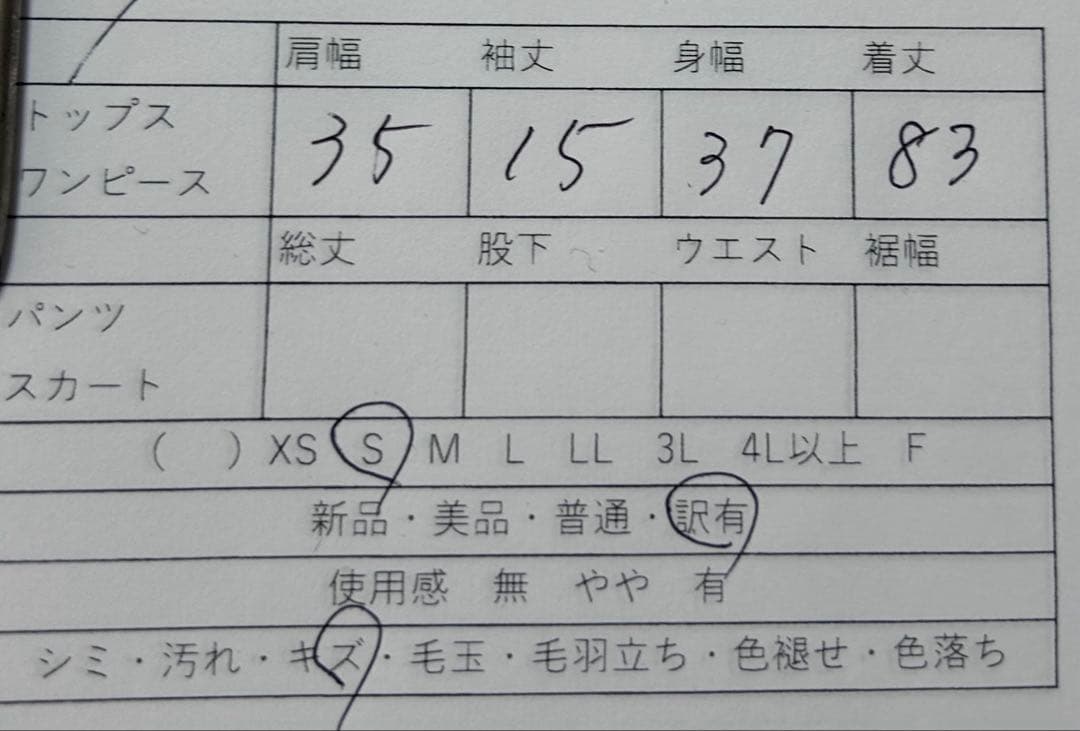 肩幅 袖丈 身幅 着丈
トップス
ワンピース
35 15 37 83
総丈 股下 ウエスト 裾幅
パンツ
スカート
( ) XS S M L LL 3L 4L以上 F
新品・美品・普通・訳有
使用感 無 やや 有
シミ・汚れ・キズ・毛玉・毛羽立ち・色褪せ・色落ち